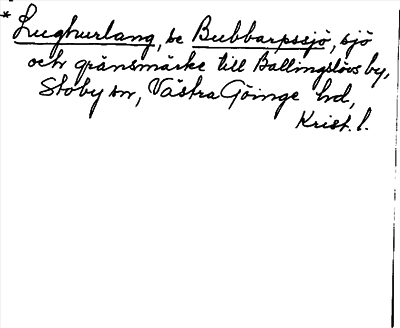 * Lughurlang, se Bubbarpssjö, sjö
och gränsmärke till Ballingslövs by,
Stoby sn, Västra Göinge hd,
Krist. l.